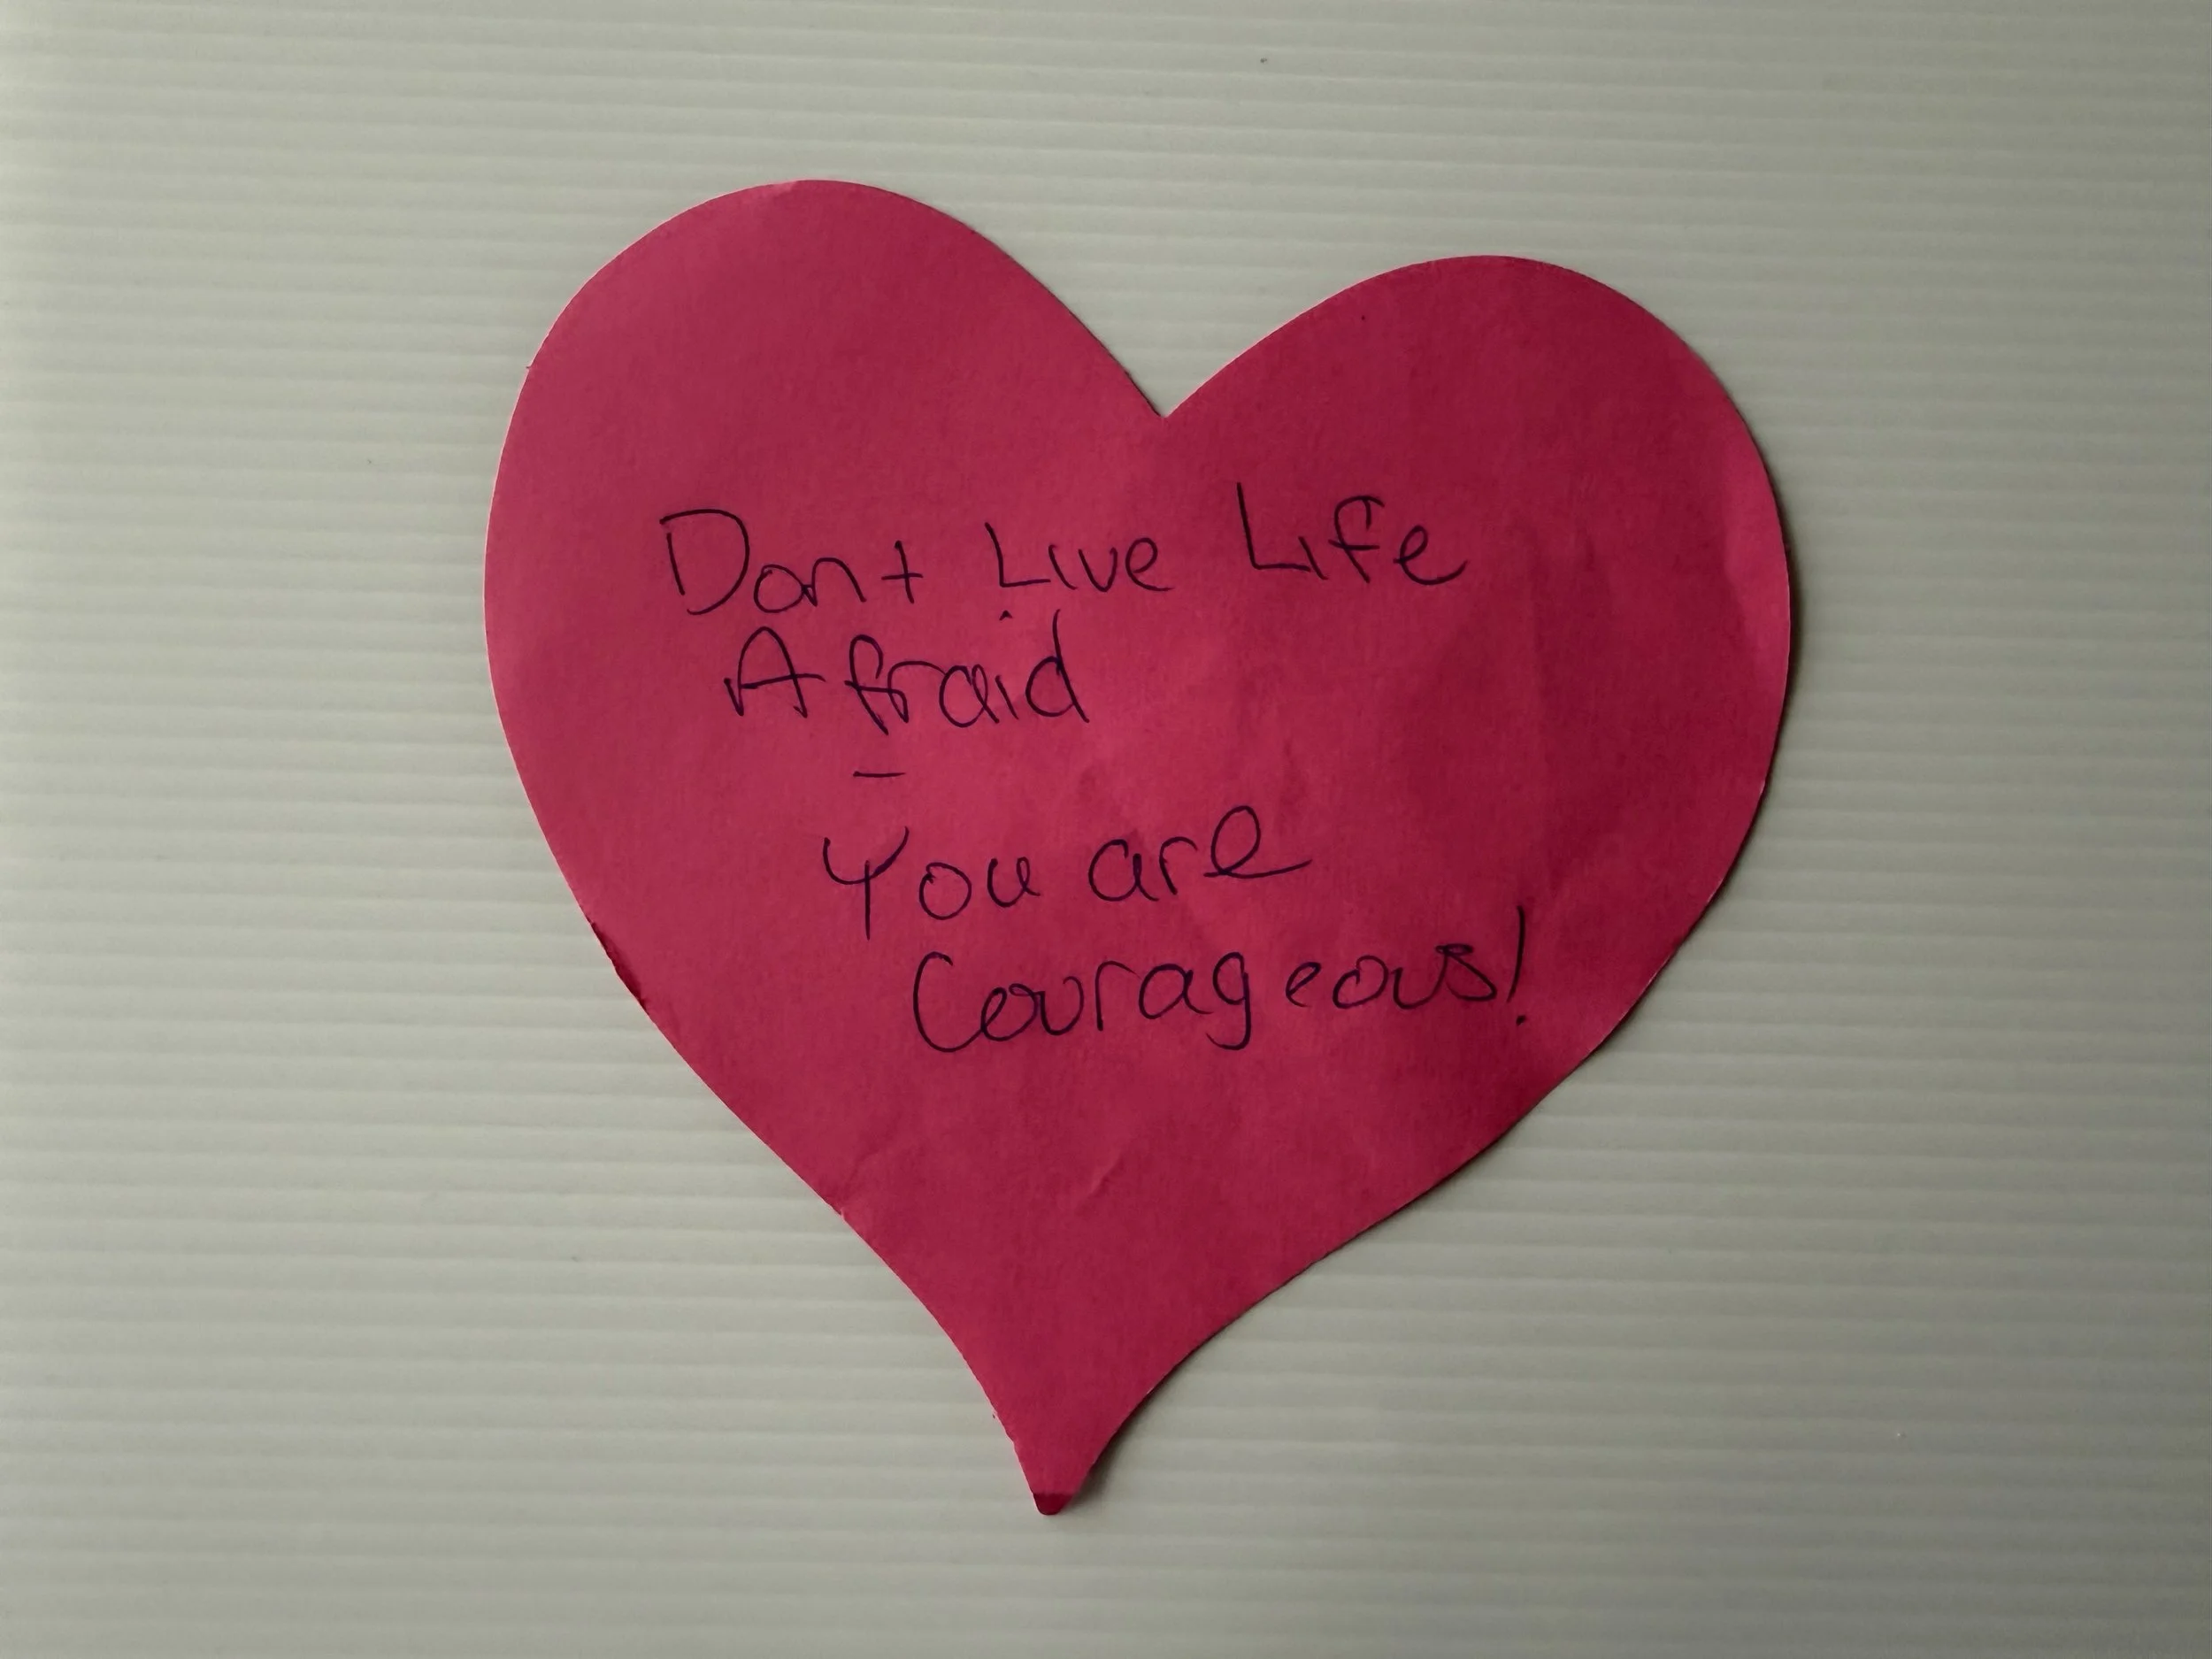 Dont Live Life
Afraid
-
You are
Courageous!